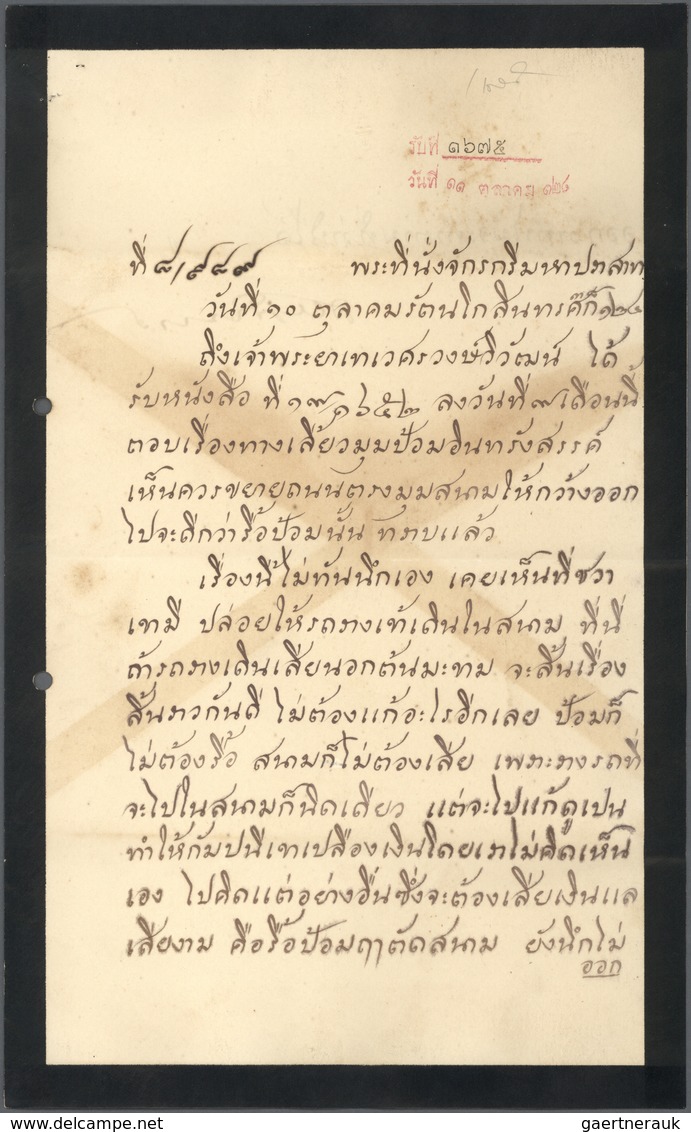 รับที่ ๑๖๗๕
วันที่ ๑๑ ตุลาคม ๑๒๔
ที่ ๘/๙๘๙ พระที่นั่งจักรกรีมหาปราสาท
วันที่ ๑๐ ตุลาคมรัตนโกสินทรศ๊ก ๑๒๔
ถึงเจ้าพระยาเทเวศรวงษ์วิวัฒน์ ได้
รับหนังสือ ที่ ลงวันที่ ๙ เดือนนี้
ตอบเรื่องทางเลี้ยวมุมป้อมอินทรังสรรค์
เห็นควรขยายถนนตรงมุมสนามให้กว้างออก
ไปจะดีกว่ารื้อป้อมนั้น ทราบแล้ว
เรื่องนี้ไม่ทันนึกเอง เคยเห็นที่ชวา
เขามี ปล่อยให้รถรางเข้าเดินในสนาม ที่นี่
ถ้ารถรางเดินเสียนอกต้นมะขาม จะสิ้นเรื่อง
สิ้นราวกันดี ไม่ต้องแก้อะไรอีกเลย ป้อมก็
ไม่ต้องรื้อ สนามก็ไม่ต้องเสีย เพราะรางรถที่
จะไปในสนามก็นิดเดียว แต่จะไปแก้ดูเปน
ทำให้กัมปนีเขาเปลืองเงินโดยเราไม่คิดเห็น
เอง ไปคิดแต่อย่างอื่นซึ่งจะต้องเสียเงินแล
เสียงาม คือรื้อป้อมฤาตัดสนาม ยังนึกไม่
ออก
gaertnerauk